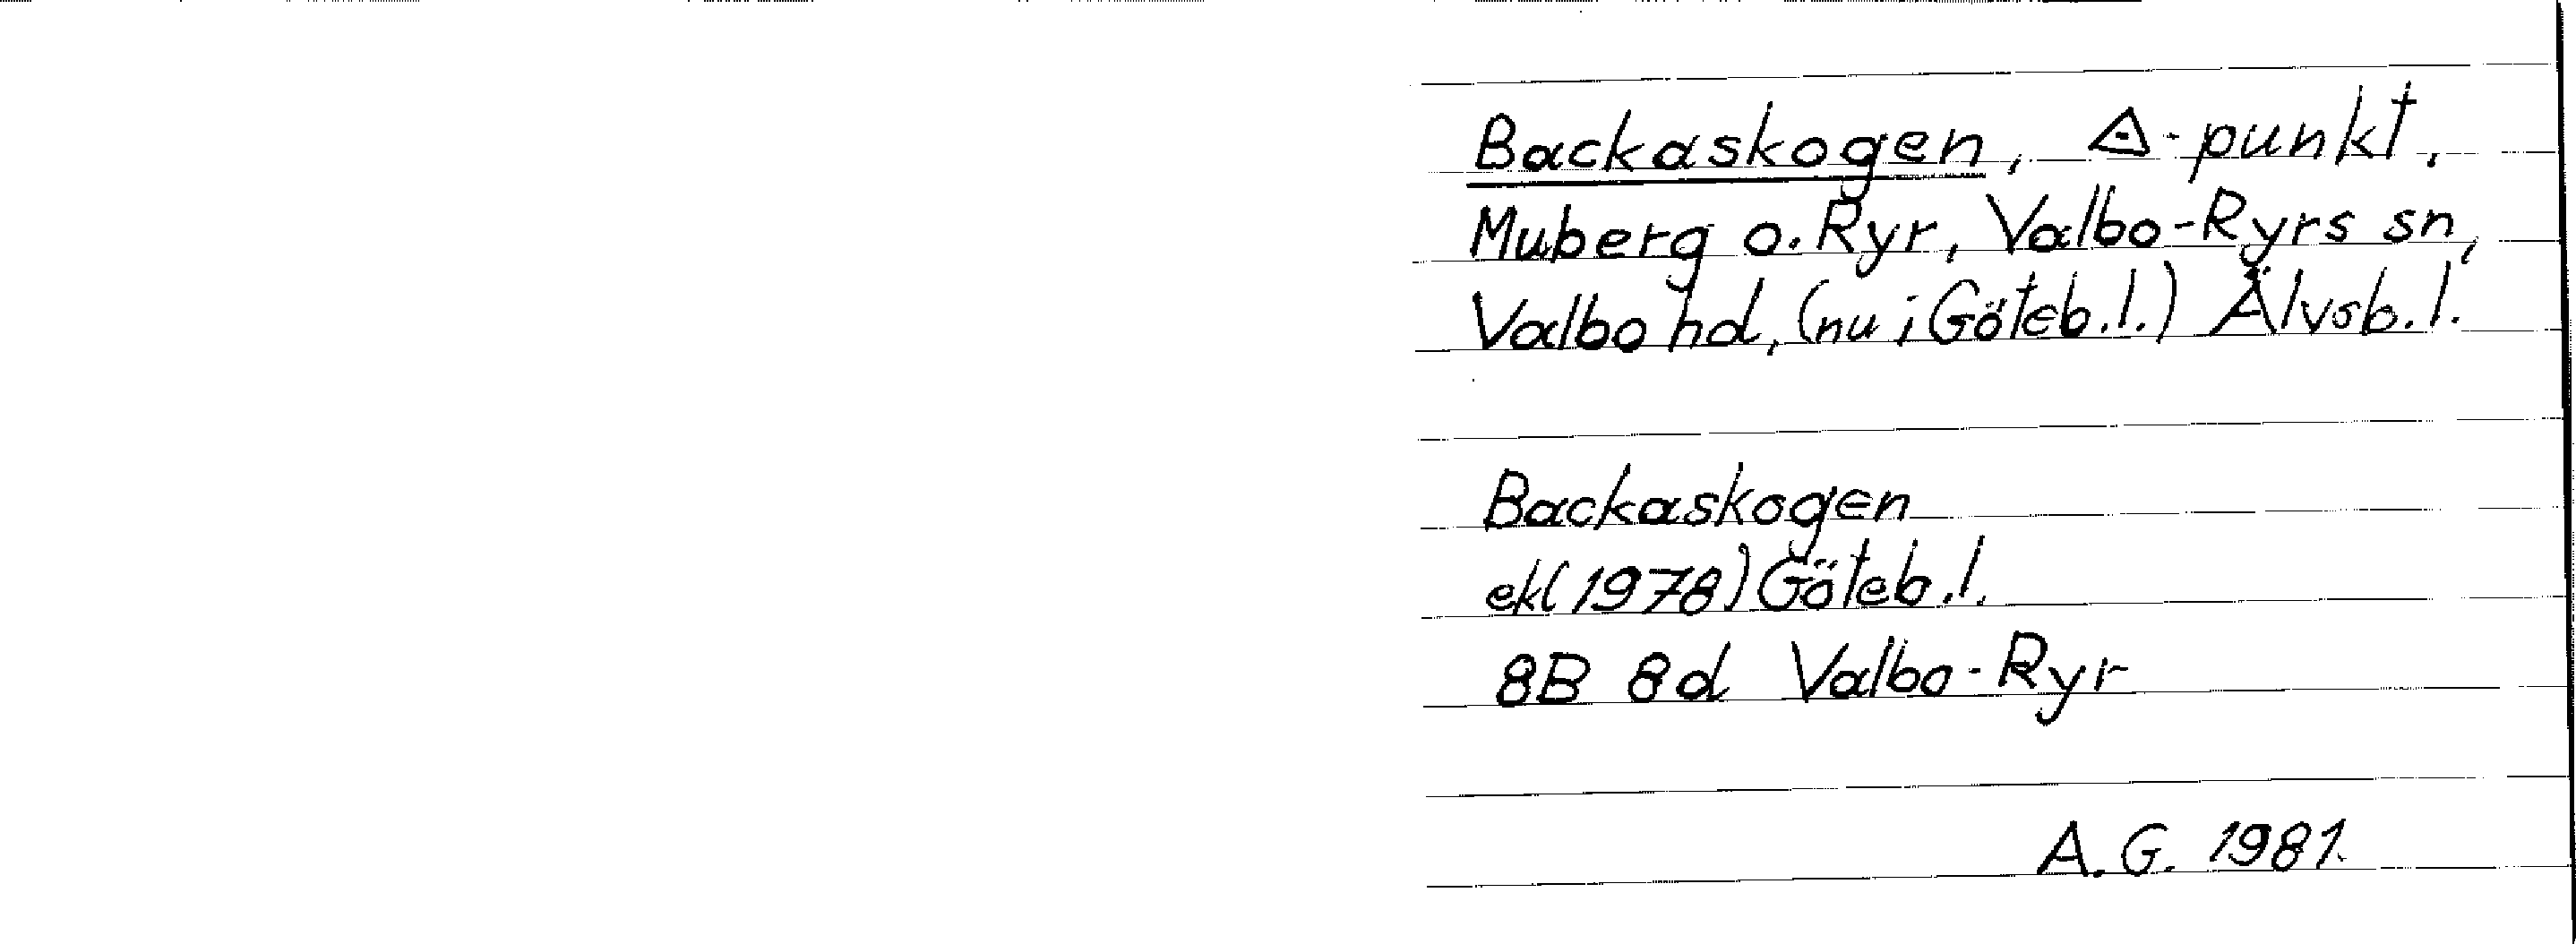 Backaskogen, △-punkt,
Muberg o. Ryr, Valbo-Ryrs sn,
Valbo hd, (nu i Göteb.l.) Älvsb.l.
Backaskogen
ekl(1978) Göteb.l.
8B 8d Valbo-Ryr
A.G. 1981.